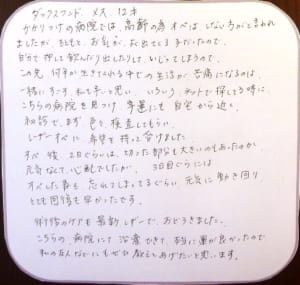 ダックスフンド メス 12才
かかりつけの病院では、高齢の為オペは しない方がと言われ
ましたが、もともと、お乳が、お出てくる子だったので、
自分で押して飲んだり出したりして、いじってしまうので、
この先 何年か生きてくれる中での生活が苦痛になるのは、
一緒にすごす、私も辛いと思い、いろいろ、ネットで探してる時に、
こちらの病院を見つけ、幸運にも自宅から近く、
初診で、まず 色々、検査してもらい、
レーザーオペに 希望を持って分けました。
オペ後、2日ぐらいは、切った部分も大きいのもあったのか、
元気なくて、心配でしたが、3日目ぐらいには
オペした事も 忘れてしまってるぐらい 元気に動き回り
とても回復も早かったです。
術後のケアも最新レーザーで、おどろきました。
こちらの 病院にて 治療できて 本当に運が良かったので
私の友人などにも ぜひ 教えてあげたいと思います。